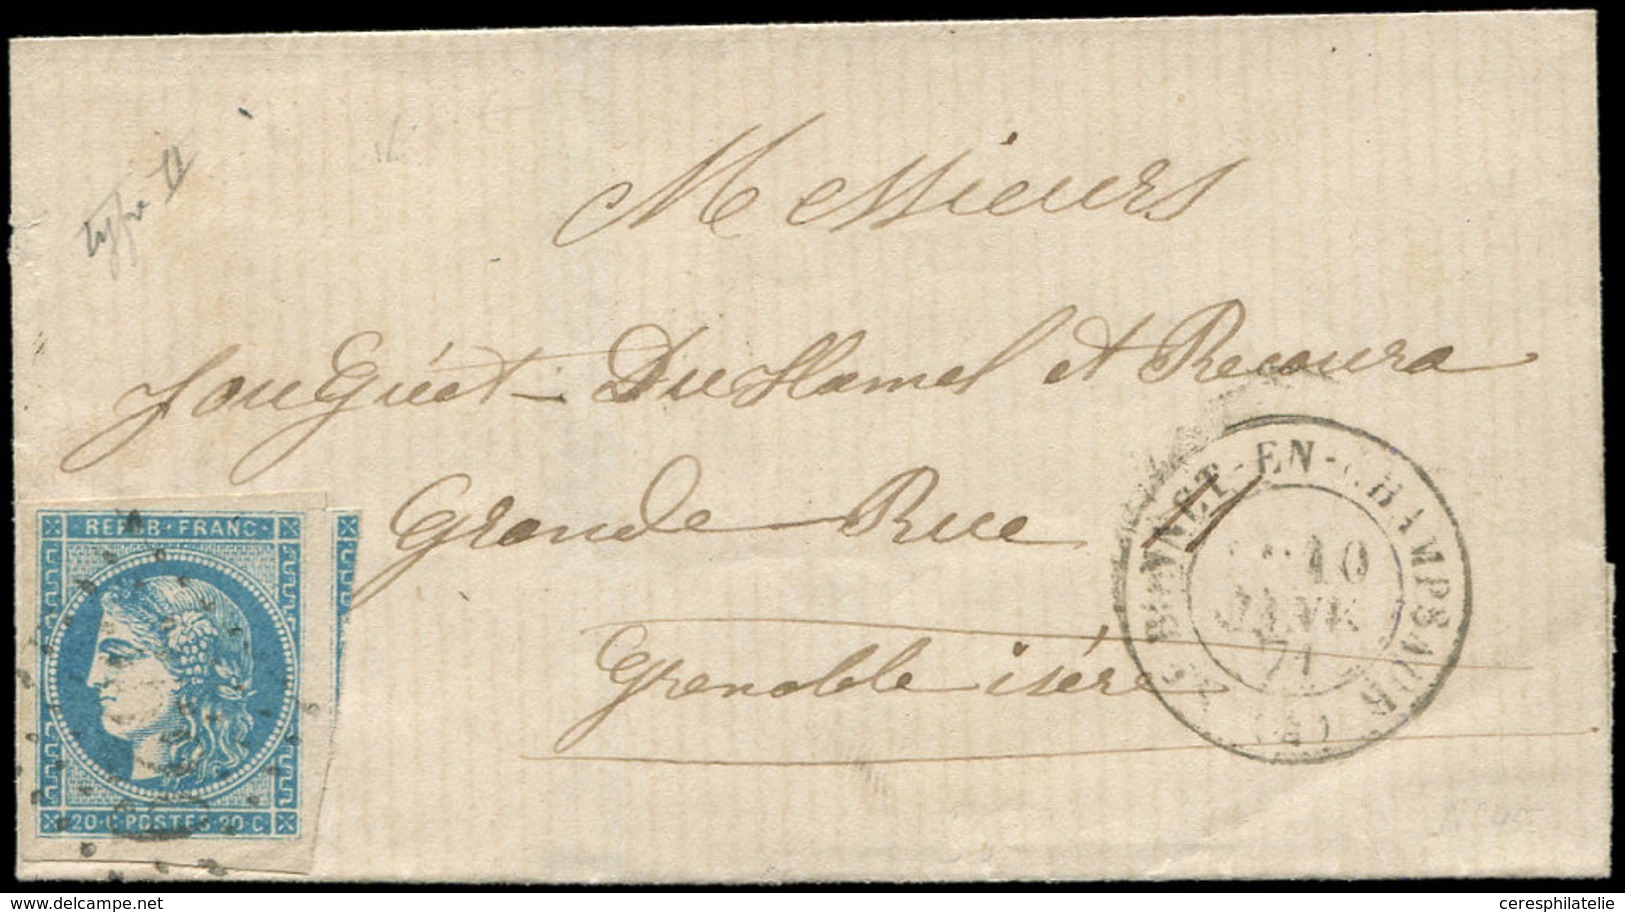 type II
Messieurs
Jouguet-Duhamel et Recoura
Grande Rue
Grenoble isère
REPUB·FRANC·
20·C POSTES 20·C
ST BONNET-EN-CHAMPSAUR
10
JANV
71
(4)
ceresphilatelie